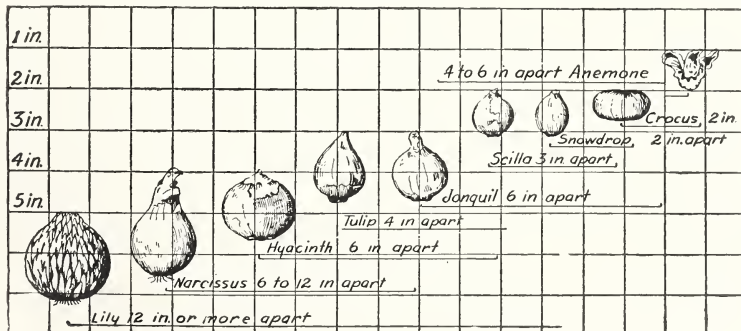 1 in.
2 in.
4 to 6 in apart Anemone
3 in.
Crocus, 2 in.
Snowdrop, 2 in. apart
4 in.
Scilla 3 in. apart
Jonquil 6 in apart
5 in.
Tulip 4 in apart
Hyacinth 6 in apart
Narcissus 6 to 12 in apart
Lily 12 in. or more apart